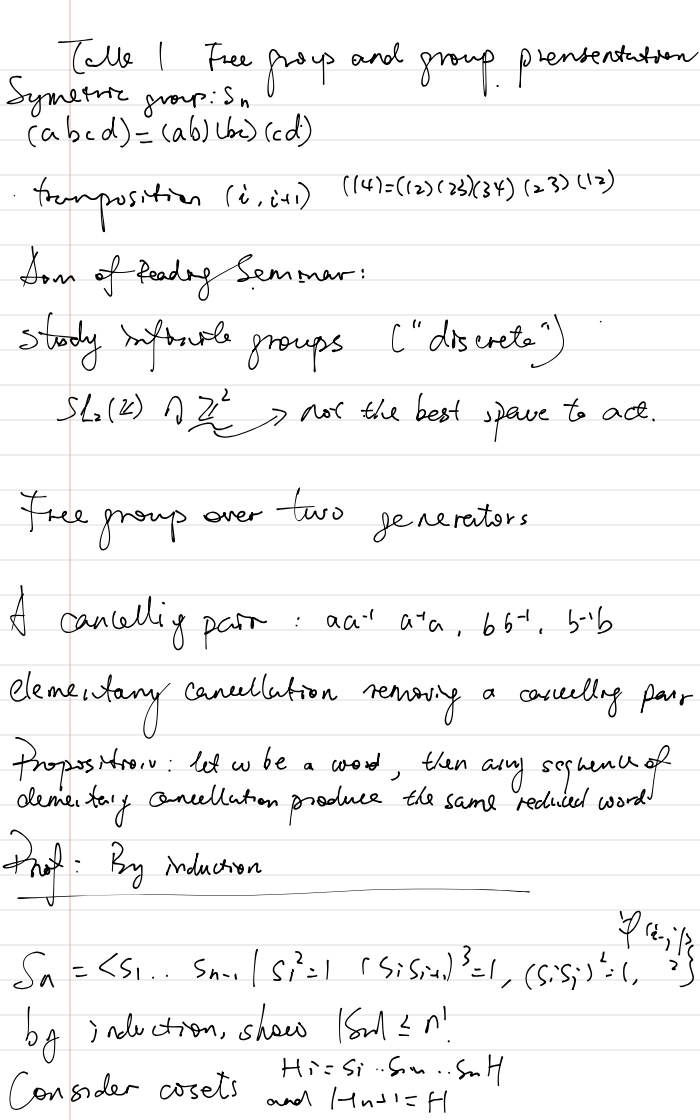 Talk 1 Free group and group presentation
Symetric group: Sn
(abcd)=(ab)(bc)(cd)
· transposition (i, i+1) (14)=(12)(23)(34)(23)(12)
Aim of Reading Seminar:
study infinite groups ("discrete")
SL₂(ℤ) ↷ ℤ² → not the best space to act.
Free group over two generators
A cancelling pair : aa⁻¹ a⁻¹a, bb⁻¹, b⁻¹b
elementary cancellation removing a cancelling pair
Proposition: let w be a word, then any sequence of
elementary cancellation produce the same reduced word
Proof: By induction
Sn = <S1 .. Sn-1 | Si²=1 (SiSi+1)³=1, (SiSj)²=1, ∀|i-j|≥2}
by induction, show |Sn| ≤ n!
Consider cosets Hi = Si .. Sn H
and Hn+1 = H